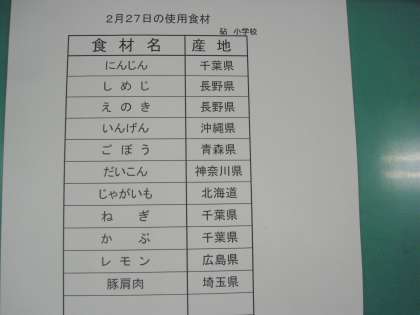 2月27日の使用食材
砧 小学校
食材名 産地
にんじん 千葉県
しめじ 長野県
えのき 長野県
いんげん 沖縄県
ごぼう 青森県
だいこん 神奈川県
じゃがいも 北海道
ねぎ 千葉県
かぶ 千葉県
レモン 広島県
豚肩肉 埼玉県